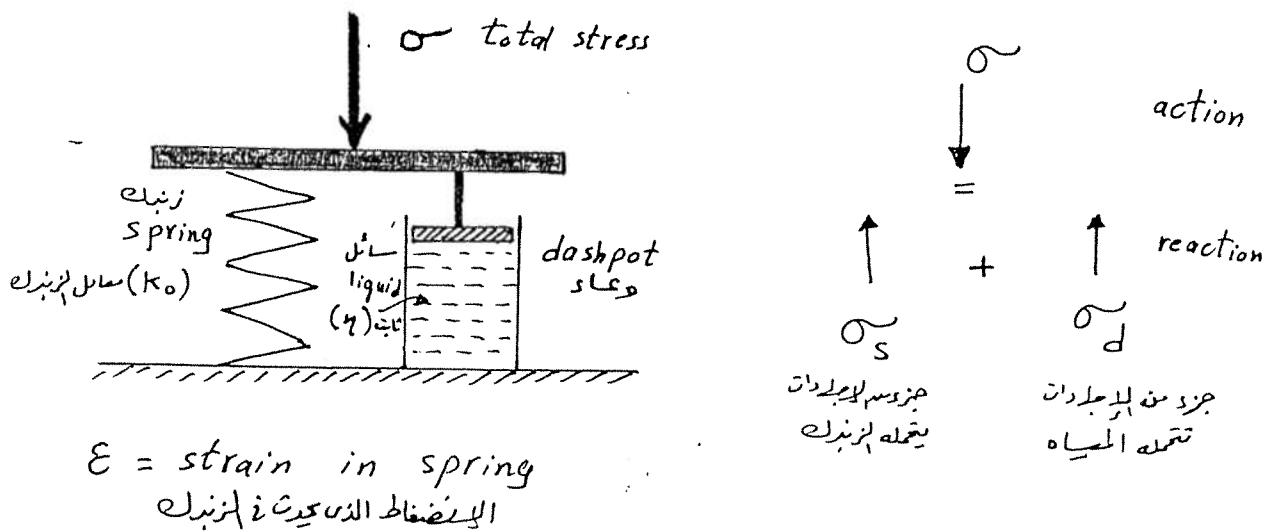 σ total stress
زنبرك
spring
معامل الزنبرك (K₀)
سائل
liquid
ثابت (η)
dashpot
وعاء
ε = strain in spring
الإنضغاط الذى يحدث فى الزنبرك
σ
action
=
+
reaction
σs
σd
جزء من الإجهادات
يتحمله الزنبرك
جزء من الإجهادات
تتحمله المياه